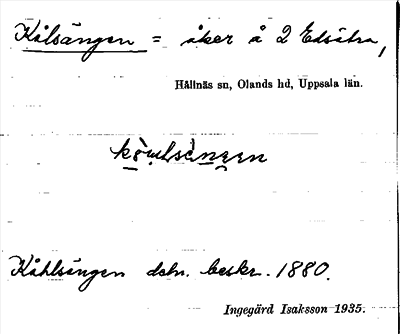 Kålsängen = åker å 2 Edsätra,
Hållnäs sn, Olands hd, Uppsala län.
Kåhlsängen dchr. beskr. 1880.
Ingegärd Isaksson 1935.